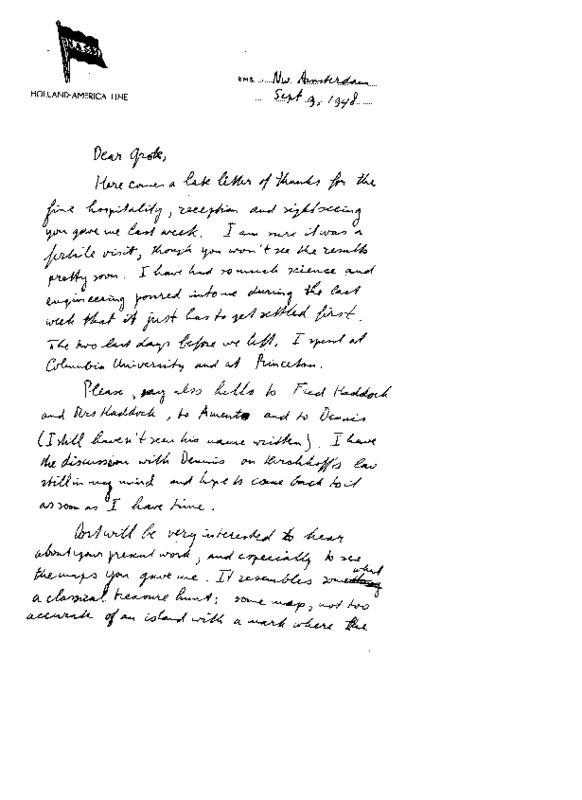 N.A.S.M.
HOLLAND-AMERICA LINE
Nw. Amsterdam
Sept 3, 1948
Dear Grote,
Here comes a late letter of thanks for the
fine hospitality, reception and sightseeing
you gave me last week. I am sure it was a
fertile visit, though you won't see the results
pretty soon. I have had so much science and
engineering poured into me during the last
week that it just has to get settled first.
The two last days before we left, I spent at
Columbia University and at Princeton.
Please, say also hello to Fred Haddock
and Mrs Haddock, to and to Dennis
(I still haven't seen his name written). I have
the discussion with Dennis on Kirchhoff's law
still in my mind and hope to come back to it
as soon as I have time.
Oort will be very interested to hear
about your present work, and especially to see
the maps you gave me. It resembles somewhat
a classical treasure hunt; some map, not too
accurate of an island with a mark where the